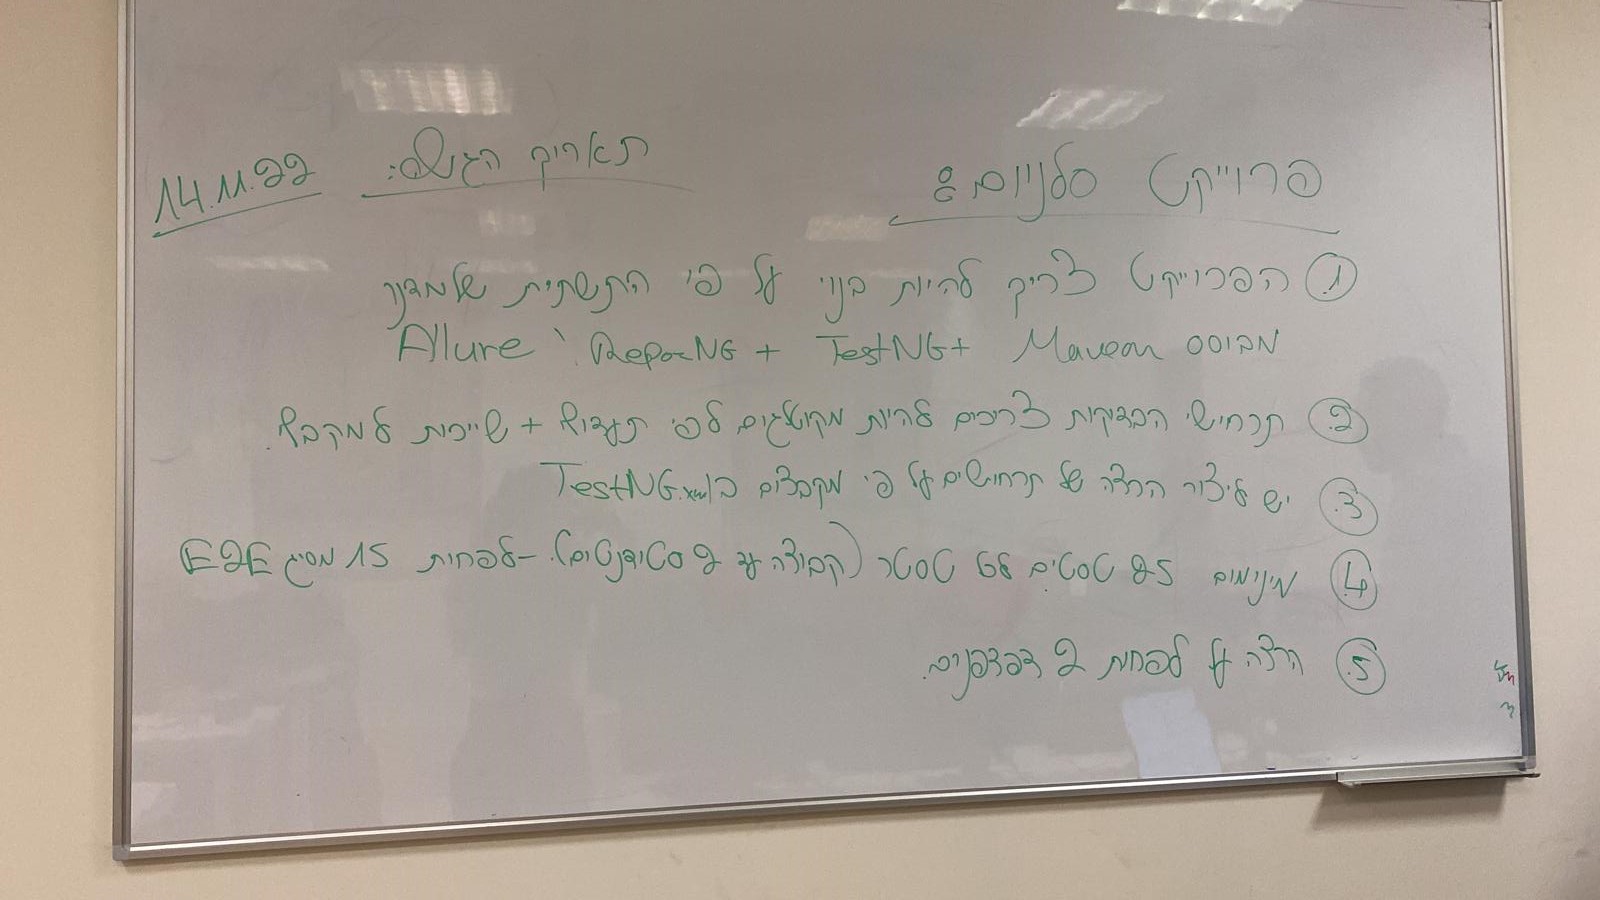 פרוייקט סלניום:
תאריך הגשה: 14.11.22
1. הפרוייקט צריך להיות בנוי על פי התשתית שלמדנו
מבוסס Maven + TestNG + ReportNG ו Allure
2. תרחישי הבדיקות צריכים להיות מקוטלגים לפי תעדוף + שייכות למקבץ.
3. יש ליצור הרצה של תרחישים על פי מקבצים ב TestNG.xml
4. מינימום 25 טסטים לכל טסטר (קבוצה עד 2 סטודנטים). - לפחות 15 מסוג E2E
5. הרצה על לפחות 2 דפדפנים.